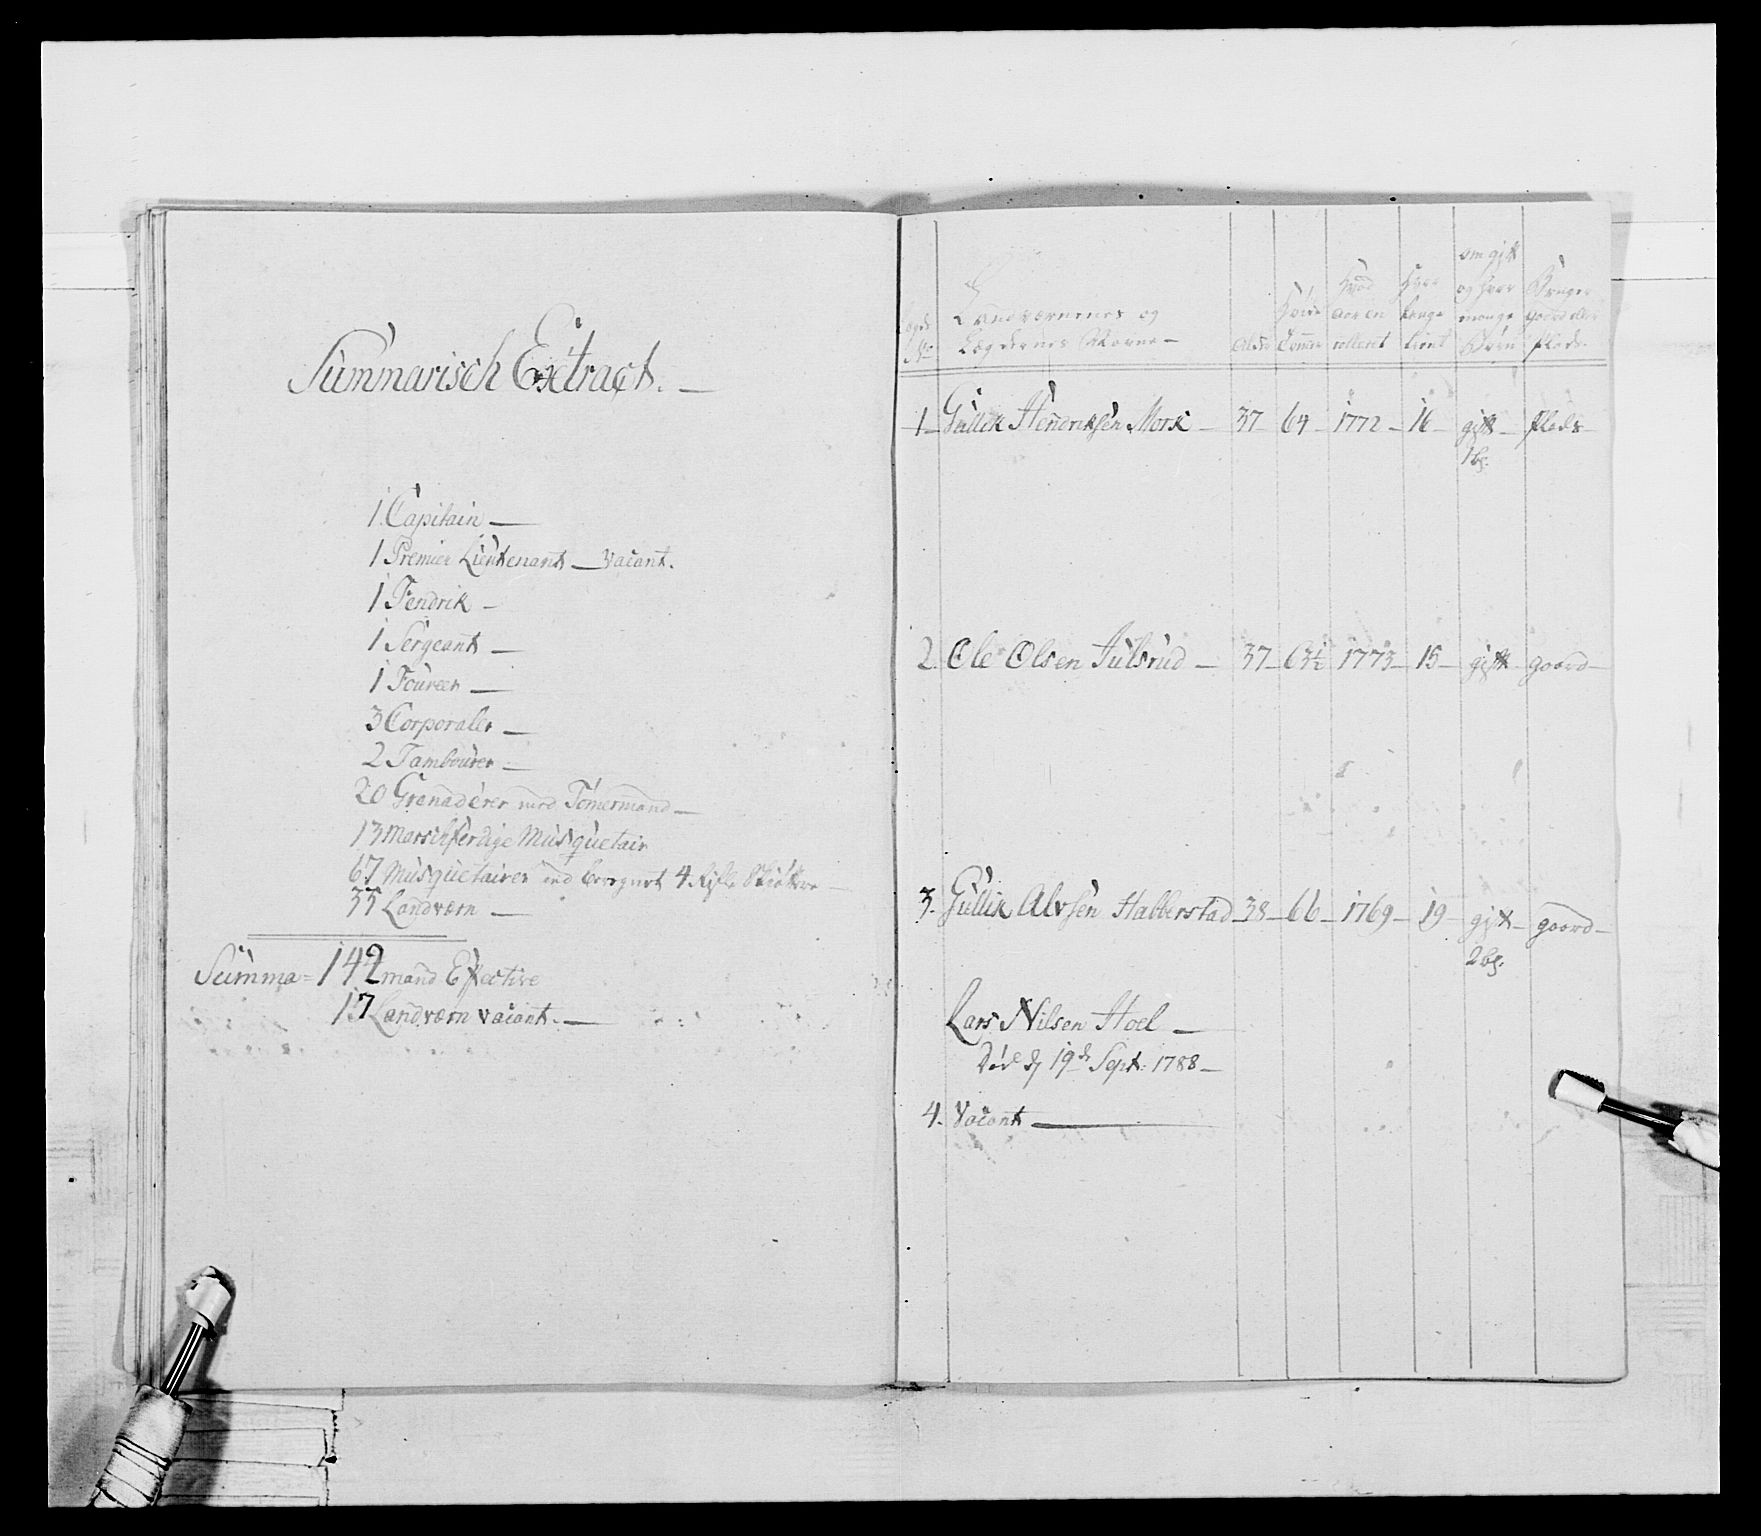 Summarisch Extract. —
1 Capitain —
1 Premier Lieutenant — vacant.
1 Fendrik —
1 Sergeant —
1 Foureer —
3 Corporaler —
2 Tambourer —
20 Granaderer med Tømermænd —
13 Marschferdige Musquetair
67 Musquetairer 4 —
33 Landværn —
Summa = 142 mand Effective
17 Landværn vacant. —
No
Landværnenes og
Lægdernes Navne —
Alder
Høide
Tommer
Hvad
Aar en
rolleret
Hvor
længe
tient
om gift
og hvor
mange
Børn
Bruger
gaard eller
Plads
1 — Gullik Hendriksen Mork — 37 — 64 — 1772 — 16 — gift — Plads —
1 b:
2 Ole Olsen Julsrud — 37 — 63½ 1773 — 15 — gift — goard —
3. Gullik Alvsen Habberstad — 38 — 66 — 1769 — 19 — gift — goard —
2 b:
Lars Nilsen Hoel —
Død d 19de Sept: 1788 —
4. Vacant —